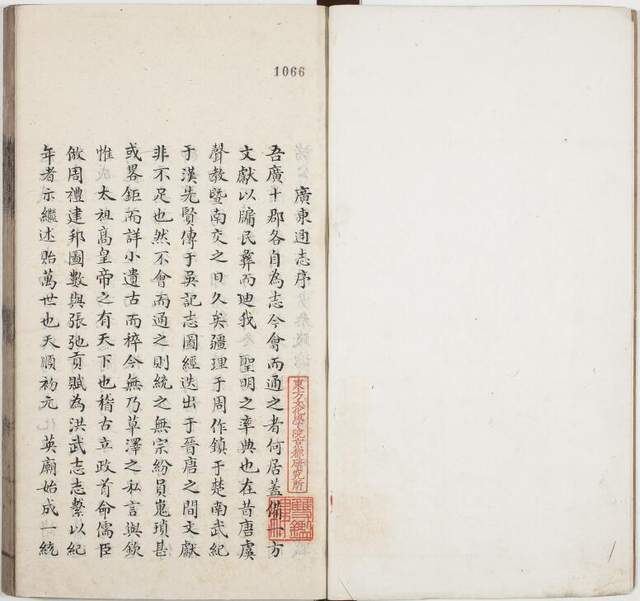 1066
廣東通志序
吾廣十郡各自為志今會而通之者何居蓋備一方
文獻以牖民彛而迪我 聖明之率典也在昔唐虞
聲教暨南交之日久矣疆理于周作鎮于楚南武紀
于漢先賢傳于吳記志圖經迭出于晉唐之間文獻
非不足也然不會而通之則統之無宗紛員嵬瑣甚
或畧鉅而詳小遺古而梓今無乃草澤之私言與欽
惟 太祖高皇帝之有天下也稽古立政首命儒臣
倣周禮建邦圖數與張弛貢賦為洪武志志繫以紀
年者示繼述貽萬世也天順初元 英廟始成一統
東方文化學院京都研究所